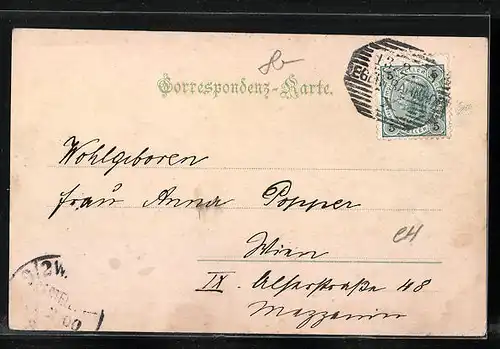 Correspondenz-Karte.
Wohlgeboren
Frau Anna Popper
Wien
IX. Alserstraße 48
Mezzanin
5 5
9/2 W.